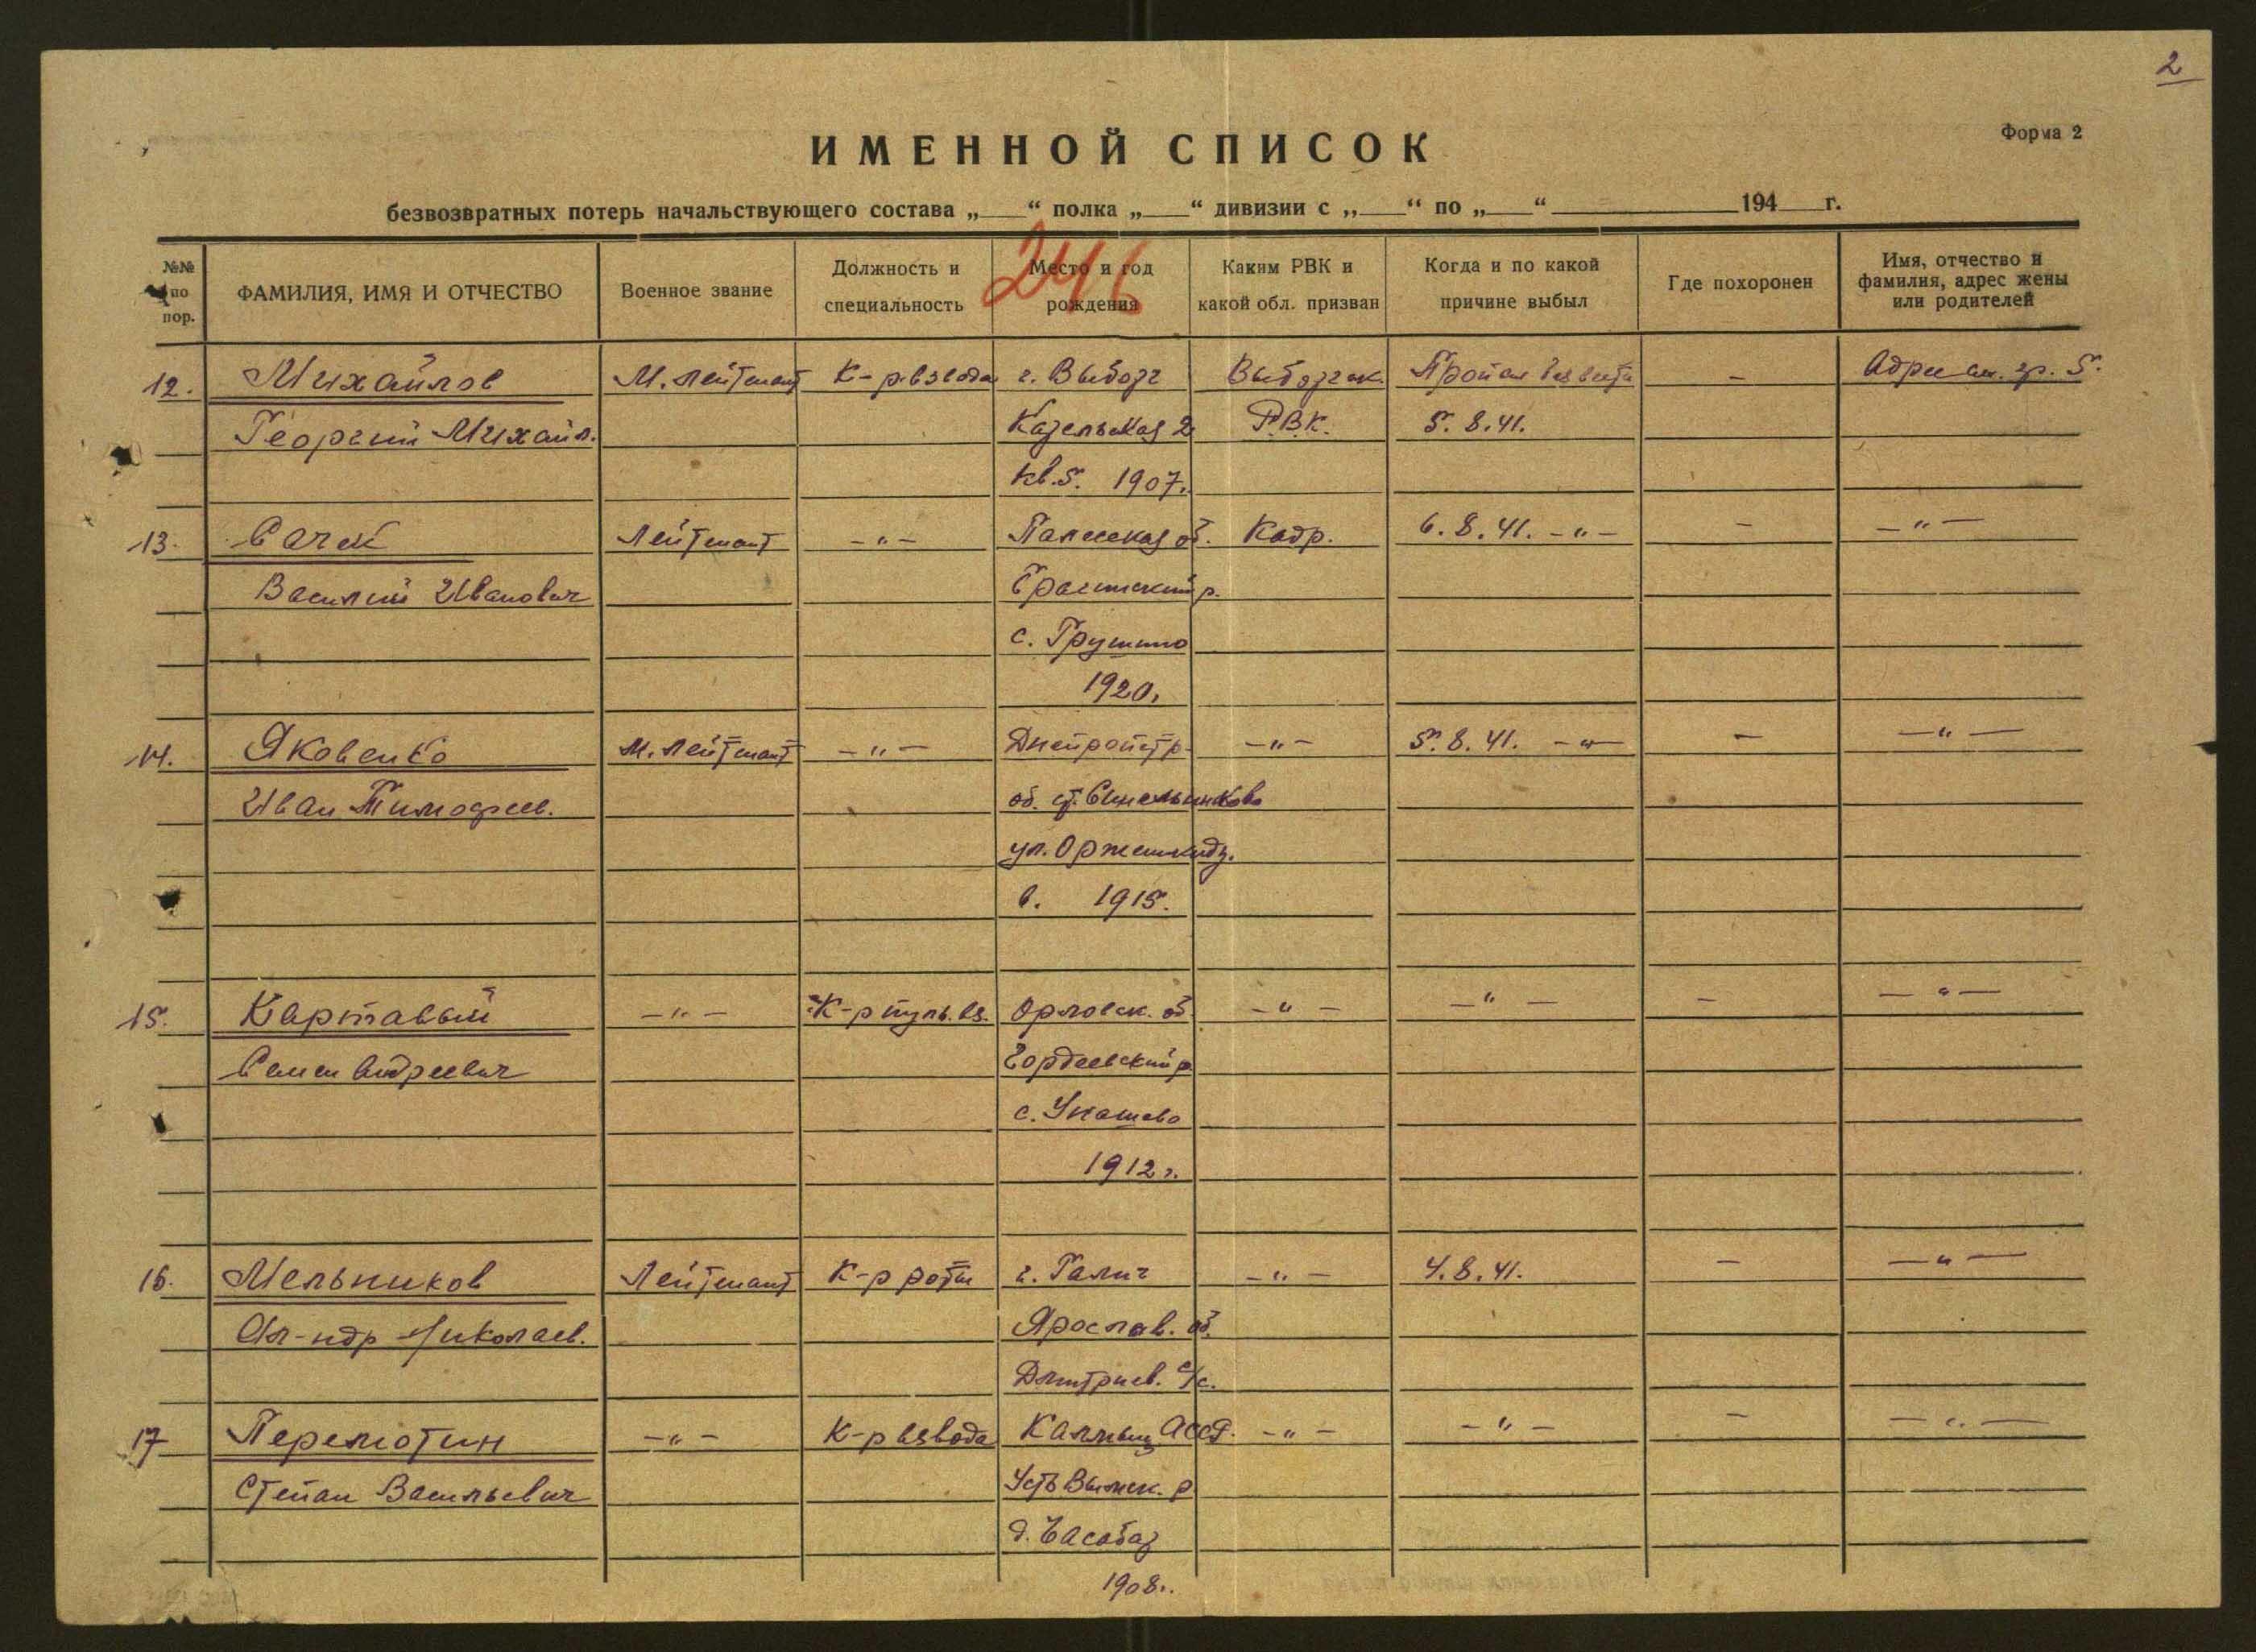 2
Форма 2
ИМЕННОЙ СПИСОК
безвозвратных потерь начальствующего состава „___“ полка „___“ дивизии с „___“ по „___“ ______ 194__г.
246
№№ по пор.
ФАМИЛИЯ, ИМЯ И ОТЧЕСТВО
Военное звание
Должность и специальность
Место и год рождения
Каким РВК и какой обл. призван
Когда и по какой причине выбыл
Где похоронен
Имя, отчество и фамилия, адрес жены или родителей
12. Михайлов М. лейтенант К-р взвода г. Выборг Выборгск. Пропал без вести — Адрес см. гр. 5.
Георгий Михайл. 2 Р.В.К. 5.8.41.
кв. 5. 1907.
13. Сачек Лейтенант —"— об. Кадр. 6.8.41. —"— — —"—
Василий Иванович р.
с. Грушино
1920.
14. Яковенко М. лейтенант —"— Днепропетр. —"— 5.8.41. —"— — —"—
Иван Тимофеев. об. ст. Синельниково
ул. Орженикидз.
1915.
15. Картавый —"— К-р пуль. вз. Орловск. об. —"— —"— — —"—
Семен Андреевич Гордеевский р.
с.
1912 г.
16. Мельников Лейтенант К-р роты г. Галич —"— 4.8.41. — —"—
Ал-ндр Николаев. Ярослав. об.
Дмитриев. с/с.
17 Перемотин —"— К-р взвода АССР. —"— —"— — —"—
Степан Васильевич Усть Вымск. р.
д.
1908.